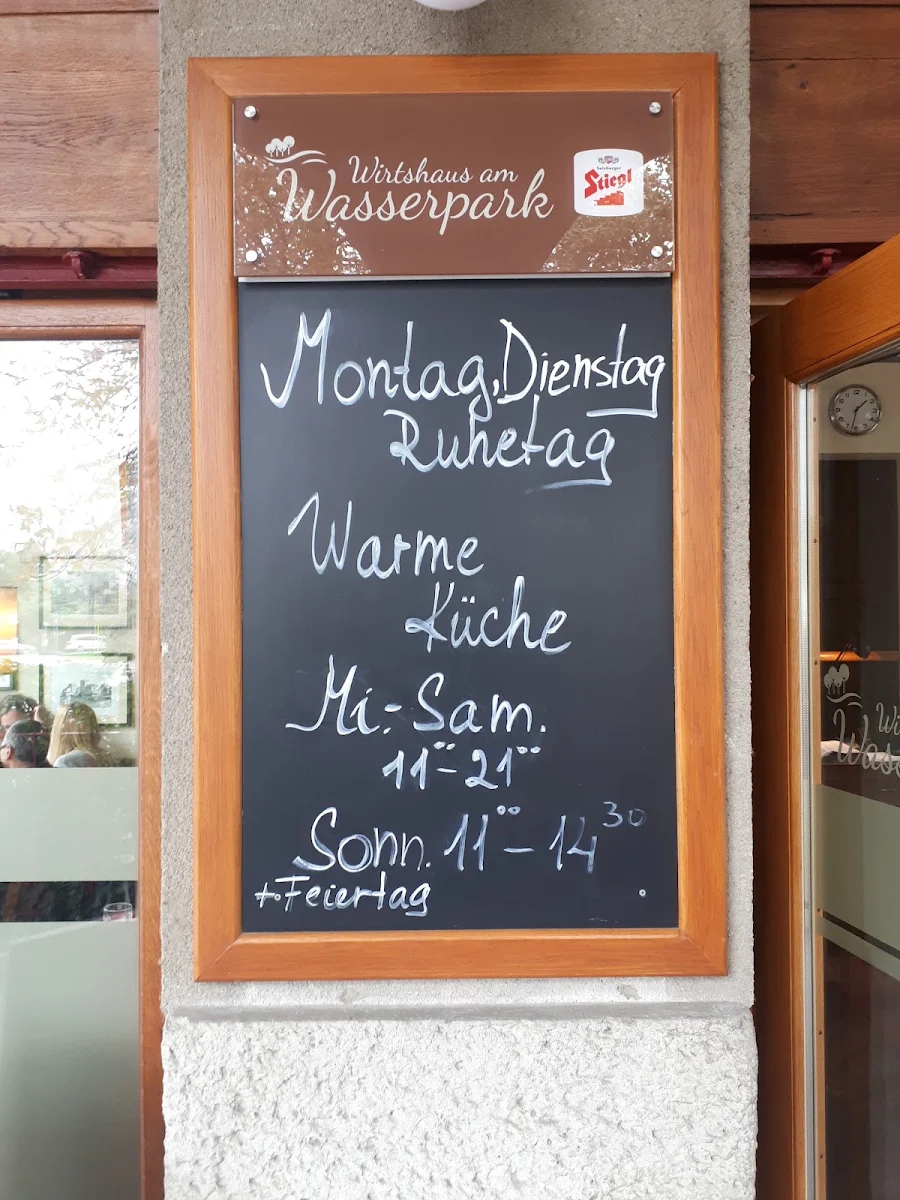 Wirtshaus am
Wasserpark
Salzburger
Stiegl
Montag, Dienstag
Ruhetag
Warme
Küche
Mi.- Sam.
11°° - 21°°
Sonn. 11°° - 14³⁰
+ Feiertag
Wi
Wass